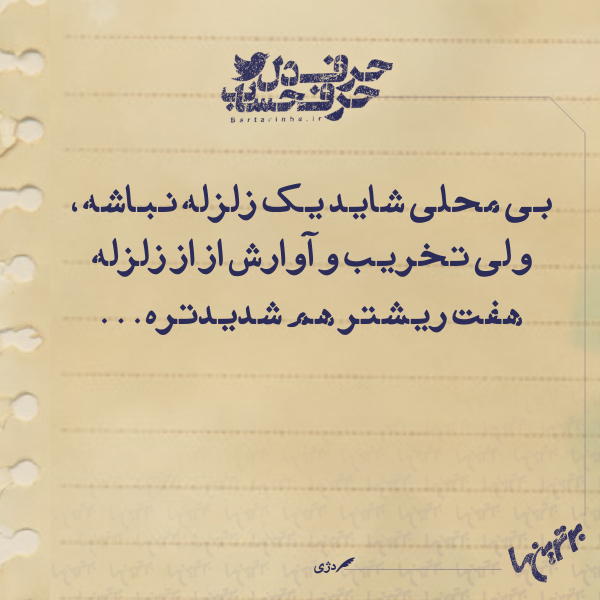 حرف دل
حرف حساب
Bartarinha.ir
بی محلی شاید یک زلزله نباشه،
ولی تخریب و آوارش از از زلزله
هفت ریشتر هم شدیدتره...
دژی
برترین‌ها